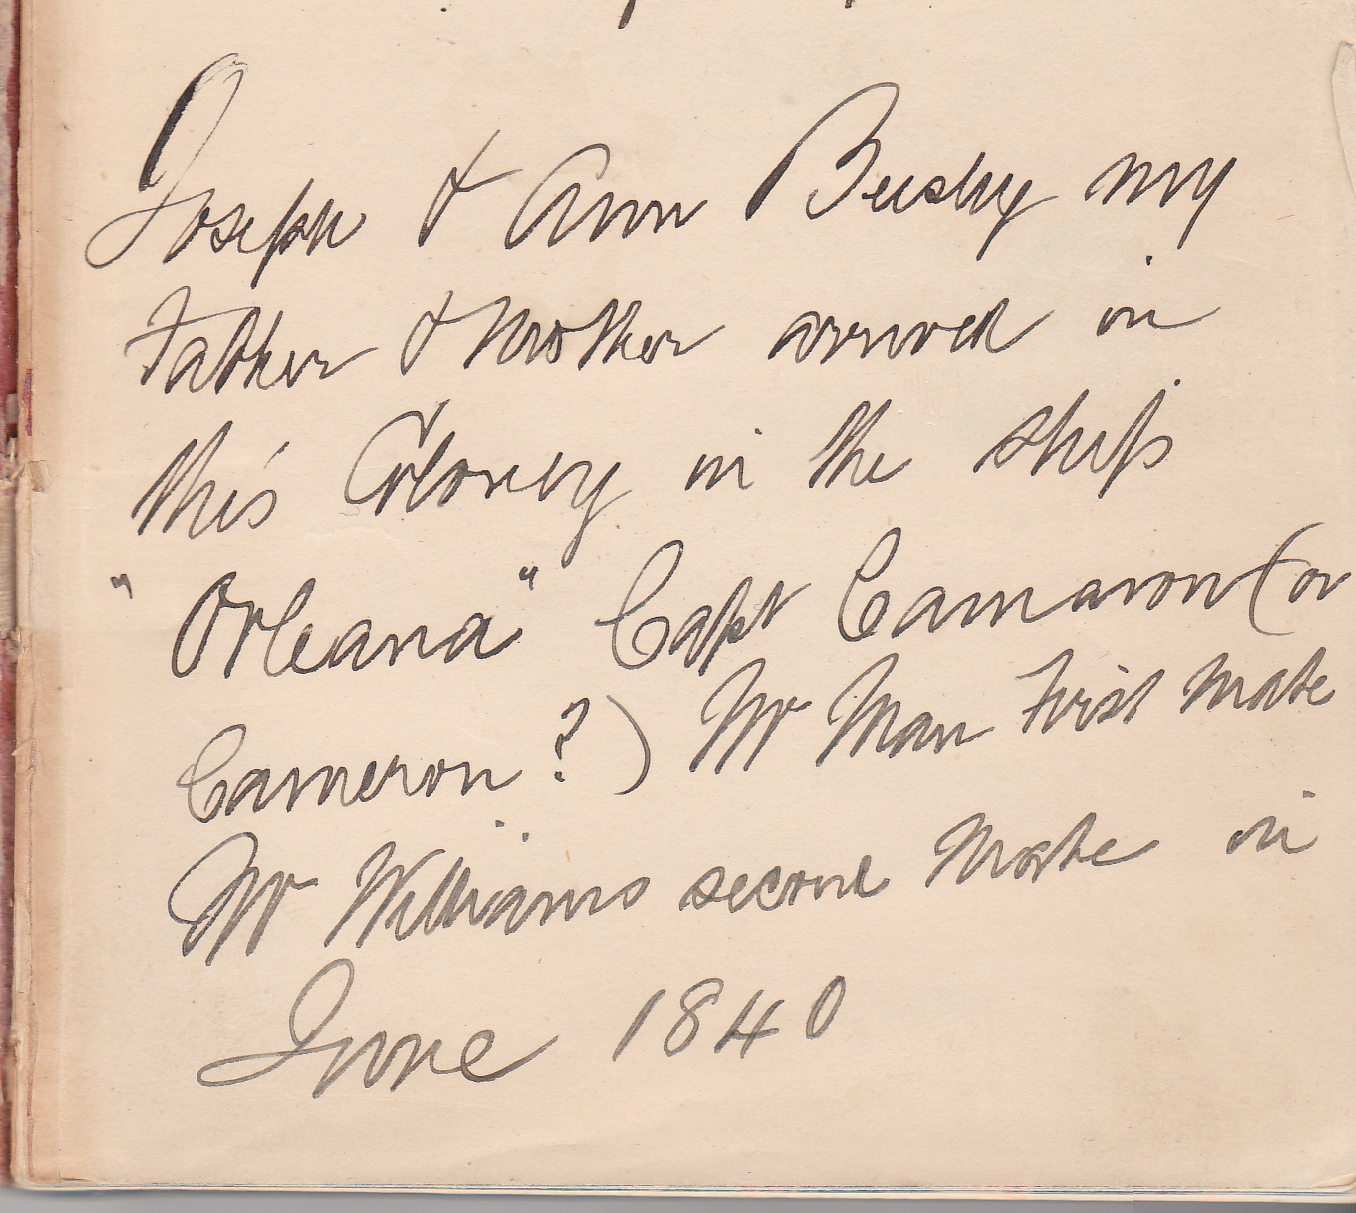 Joseph & Ann Busby my
Father & Mother arrived in
this Colony in the ship
"Orleana" Capt Camaron (or
Cameron ?) Mr Man First Mate
Mr Williams second Mate in
June 1840